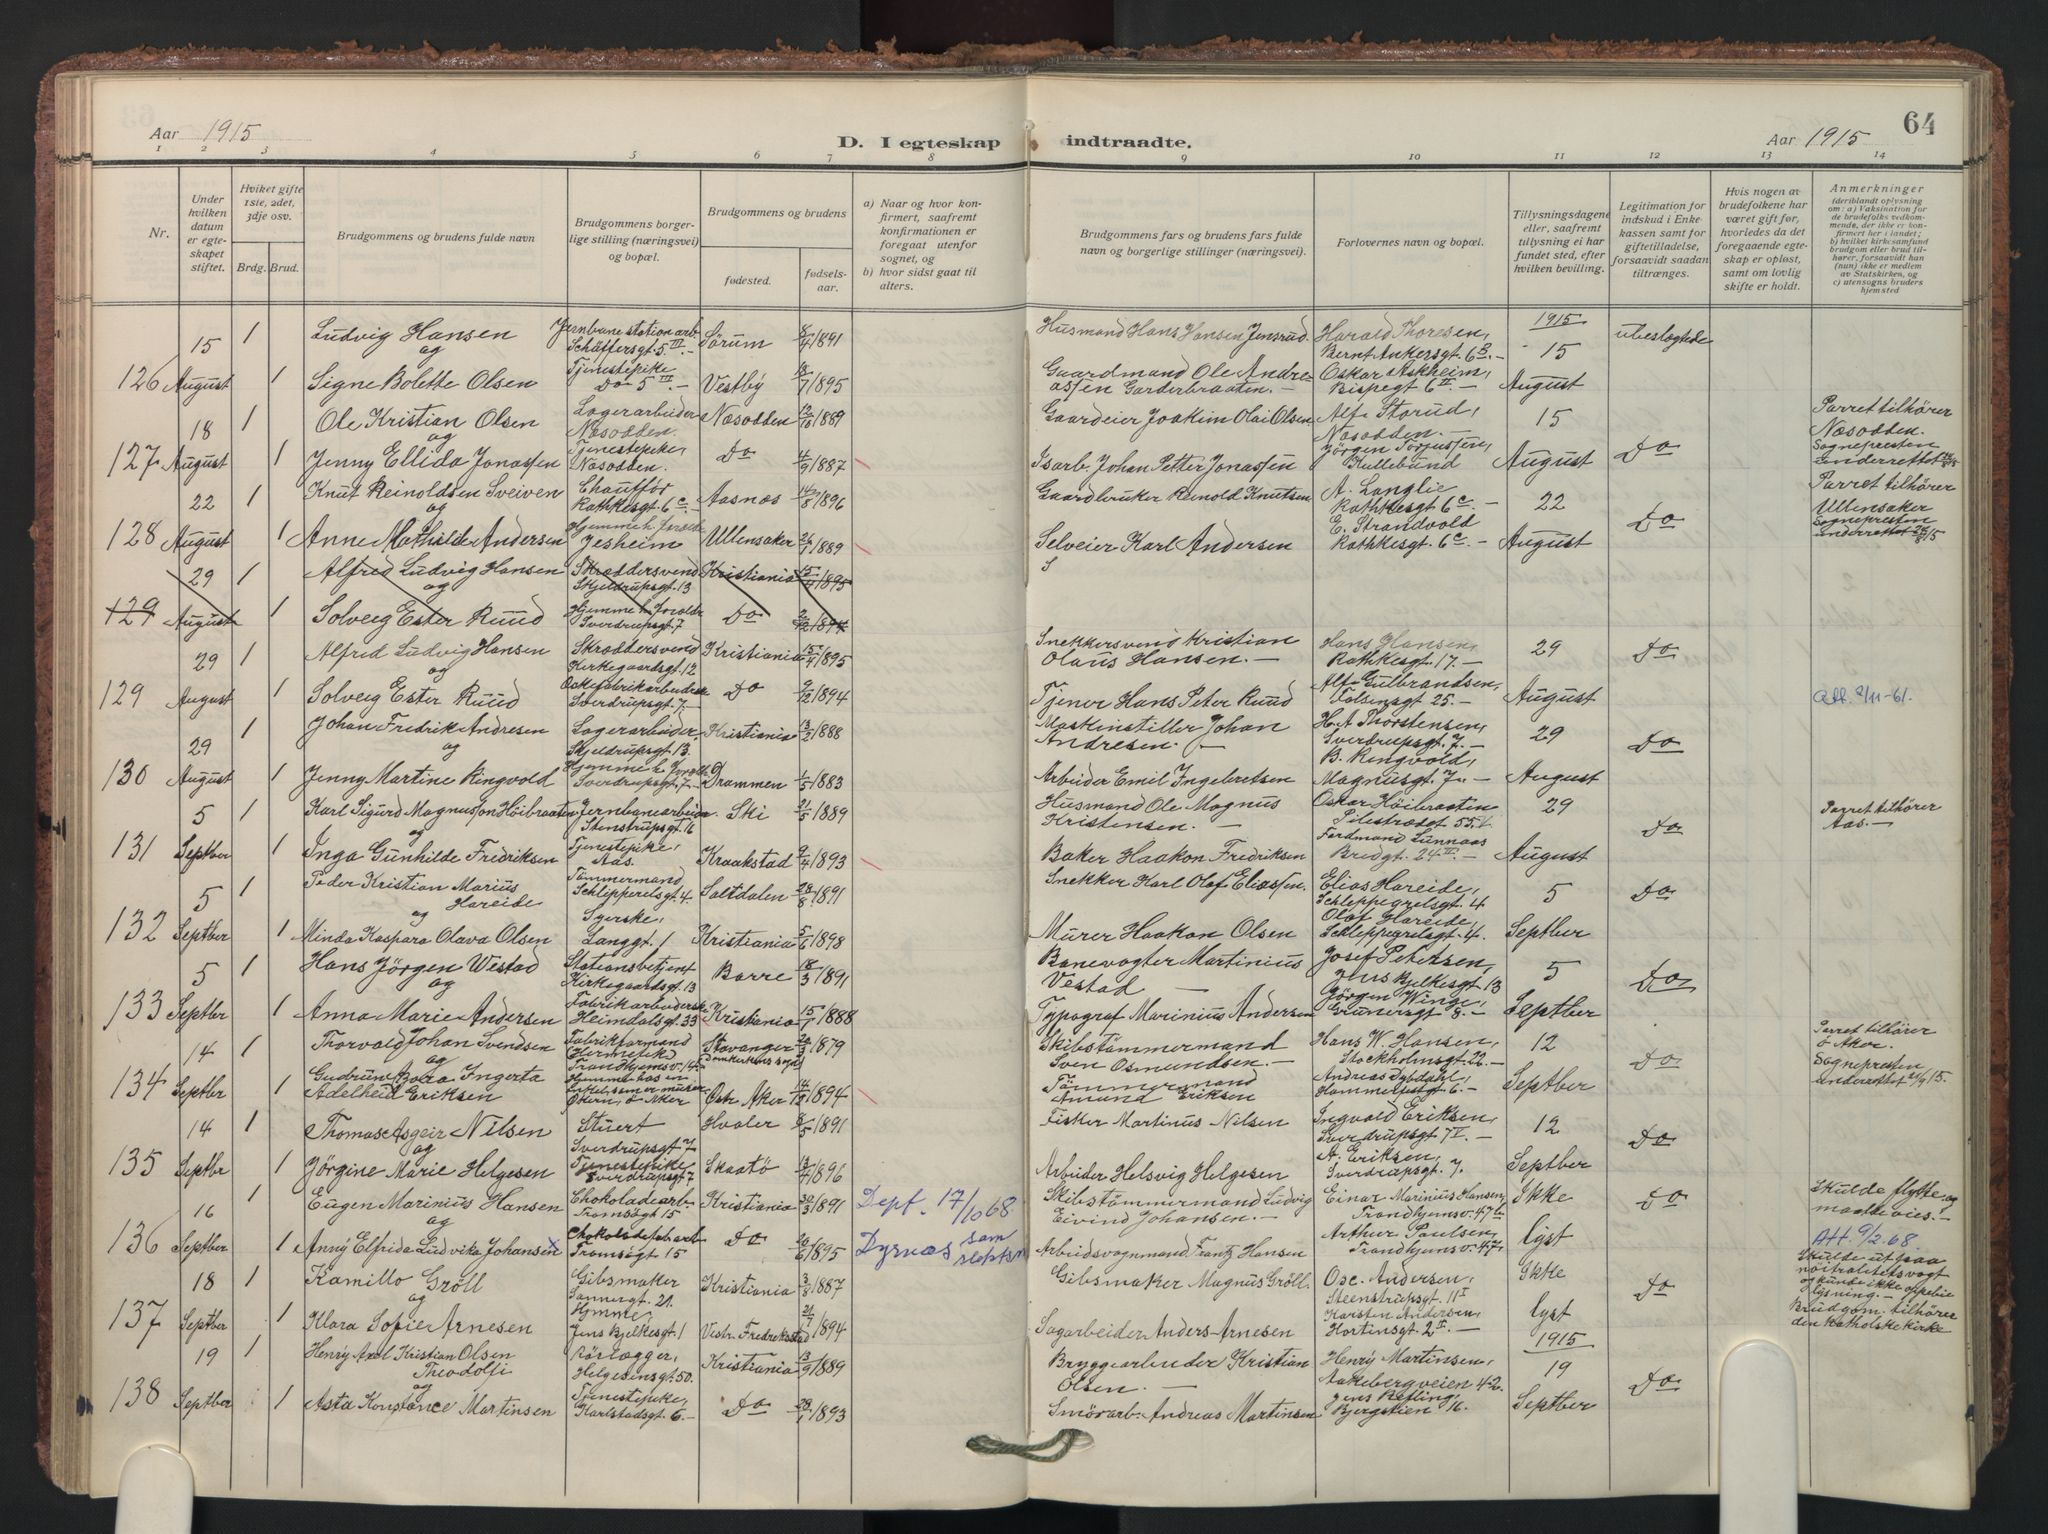 64
Aar 1915
D. I egteskap
indtraadte.
Aar 1915
1 2 3 4 5 6 7 8 9 10 11 12 13 14
Nr.
Under hvilken datum er egteskapet stiftet.
Hvilket gifte 1ste, 2det, 3dje osv.
Brdg. Brud.
Brudgommens og brudens fulde navn
Brudgommens borgerlige stilling (næringsvei) og bopæl.
Brudgommens og brudens
fødested.
fødselsaar.
a) Naar og hvor konfirmert, saafremt konfirmationen er foregaat utenfor sognet, og
b) hvor sidst gaat til alters.
Brudgommens fars og brudens fars fulde navn og borgerlige stillinger (næringsvei).
Forlovernes navn og bopæl.
Tillysningsdagene eller, saafremt tillysning ei har fundet sted, efter hvilken bevilling.
Legitimation for indskud i Enkekassen samt for giftetilladelse, forsaavidt saadan tiltrænges.
Hvis nogen av brudefolkene har været gift før, hvorledes da det foregaaende egteskap er opløst, samt om lovlig skifte er holdt.
Anmerkninger
(deriblandt oplysning om: a) Vaksination for de brudefolks vedkommende, der ikke er konfirmert her i landet; b) hvilket kirkesamfund brudgom eller brud tilhører, forsaavidt han (hun) ikke er medlem av Statskirken, og c) utensogns bruders hjemsted
15 1 Ludvig Hansen Jernbanestationarb. Schäffersgt. 5 III.- Sörum 8/4 1891 Husmand Hans Hansen Jensrud. Harald Thoresen, Bernt Ankersgt. 6 B.- 1915 15 ubeslegtede
og
126 August 1 Signe Bolette Olsen Tjenestepike Do 5 III.- Vestby 18/7 1895 Gaardmand Ole Andreassen Garderbraaten.- Oskar Askheim, Bispegt 6 II.- August
18 1 Ole Kristian Olsen Lagerarbeider Næsodden. Næsodden 12/10 1889 Gaardeier Joakim Olai Olsen Alf Storud, Næsodden.- 15 Parret tilhörer Næsodden.
og
127 August 1 Jenny Ellida Jonassen Tjenestepike, Næsodden. Do 4/9 1887 Isarb. Johan Petter Jonassen Jörgen Torjussen, Kullebund August Do Sognepresten underrettet
22 1 Knut Reinoldsen Sveiven Chaufför Rathkesgt. 6 c.- Aasnæs 14/8 1896 Gaardbruker Reinold Knutsen A. Langlie Rathkesgt. 6 c.- 22 Parret tilhörer Ullensaker
og
128 August 1 Anne Mathilde Andersen Hjemme h. foræld. Jesheim Ullensaker 26/1 1889 Selveier Karl Andersen E. Strandvold Rathkesgt. 6 c.- August Do Sognepresten underrettet
29 1 Alfred Ludvig Hansen Skræddersvend Skjeldrupsgt. 13 Kristiania 15/4 1895
og
129 August 1 Solveig Ester Ruud Hjemme h. foræld. Sverdrupsgt. 7 Do 1894
29 1 Alfred Ludvig Hansen Skræddersvend Kirkegaardsgt. 12 Kristiania 15/4 1895 Snekkersvend Kristian Olaus Hansen.- Hans Hansen, Rathkesgt. 17.- 29 Do
og
129 August 1 Solveig Ester Ruud Eskefabrikarbeiderske Sverdrupsgt. 7.- Do 9/12 1894 Tjener Hans Peter Ruud Alf Gulbrandsen, Falsensgt 25.- August Att. 2/11-61.
29 1 Johan Fredrik Andresen Lagerarbeider, Skjeldrupsgt. 13. Kristiania 13/2 1888 Maskinstiller Johan Andresen.- H. A Thorstensen, Sverdrupsgt. 7.- 29 Do
og
130 August 1 Jenny Martine Ringvold Hjemme h. foræld. Sverdrupsgt. 7.- Drammen 1/5 1883 Arbeider Emil Ingebretsen B. Ringvold, Magnusgt. 7.- August
5 1 Karl Sigurd Magnusson Höibraaten Jernbanearbeider. Stenstrupsgt. 16 Ski 21/5 1889 Husmand Ole Magnus Kristensen.- Oskar Höibraaten Pilestrædet 55 I. 29 Do Parret tilhörer Aas.-
og
131 Septber 1 Inga Gunhilde Fredriksen Tjenestepike, Aas. Kraakstad 9/4 1893 Baker Haakon Fredriksen Ferdinand Sunnaas Bredgt. 24 II.- August
5 1 Peder Kristian Marius Hareide Tömmermand Schleppegrelsgt. 4. Saltdalen 28/8 1891 Snekker Karl Olaf Eliassen. Elias Hareide, Schleppegrelsgt. 4 5 Do
og
132 Septber 1 Minda Kaspara Olava Olsen Syerske, Langgt. 1 Kristiania 5/6 1898 Murer Haakon Olsen Olaf Hareide, Schleppegrelsgt. 4. Septber
5 1 Hans Jörgen Westad Stationsbetjent Kirkegaardsgt. 13 Borre 18/3 1891 Banevogter Martinius Vestad - Josef Petersen, Jens Bjelkesgt 13 5 Do
og
133 Septber 1 Anna Marie Andersen Fabrikarbeiderske Heimdalsgt. 33 Kristiania 15/1 1888 Typograf Marinius Andersen Jörgen Winge, Grünersgt 8.- Septber
14 1 Thorvald Johan Svendsen Fabrikformand Trondhjemsv. 14.- Stavanger Domkirkens sogn 1879 Skibstömmermand Sven Osmundsen.- Hans W. Hansen, Stockholmsgt. 22.- 12 Do Parret tilhörer Ö. Aker.
og
134 Septbr 1 Gudrun Bora Ingerta Adelheid Eriksen Hjemme hos en murer Økern, ö. Aker Östr. Aker 14/12 1894 Tömmermand Amund Eriksen Andreas Dybdahl, Hammerfestgt. 6.- Septber Sognepresten underrettet 21/9 15.
14 1 Thomas Asgeir Nilsen Stuert Sverdrupsgt 7 Hvaler 8/5 1891 Fisker Martinus Nilsen Ingvald Eriksen, Sverdrupsgt. 7 V.- 12 Do
og
135 Septbr 1 Jörgine Marie Helgesen Tjenestepike Sverdrupsgt. 7 Skaatö 13/4 1896 Arbeider Helsvig Helgesen A. Eriksen, Sverdrupsgt. 7. Septber
16 1 Eugen Marinius Hansen Chokoladearb.- Tromsögt 15 Kristiania 30/3 1891 Dept. 17/10 68 Skibstömmermand Ludvig Eivind Johansen.- Einar Marinius Hansen, Trondhjemsv. 47 b Ikke Do Skulde flytte og maatte vies.-
og
136 Septber 1 Anny Elfrida Ludvika Johansen x Chokoladefabarb Tromsögt 15 Do 20/6 1895 Dyrnæs som slektsn Arbeidsvognmand Frantz Hansen Arthur Paulsen, Trondhjemsv. 47 lyst Att. 9/2 68.
18 1 Kamillo Gröll Gibsmaker Sannergt. 21. Kristiania 3/8 1887 Gibsmaker Magnus Gröll. Osc. Andersen, Steenstrupsgt. 11 I Ikke Do Skulde ut paa nöitralitetsvagt og kunde ikke oppebie lysning.-
og
137 Septber 1 Klara Sofie Arnesen Hjemme Jens Bjelkesgt. 1 Vestr. Fredrikstad 21/7 1894 Sagarbeider Anders Arnesen Karsten Andersen, Hortinsgt. 2 II.- lyst Brudgom. tilhörer den katholske kirke
19 1 Henry Axel Kristian Olsen Theodolfi Rörlægger, Helgesensgt. 50. Kristiania 13/9 1889 Bryggearbeider Kristian Olsen.- Henry Martinsen, Aakebergveien 42. 1915 19 Do
og
138 Septber 1 Asta Konstance Martinsen Tjenestepike, Karlstadsgt. 6.- Do 28/1 1893 Smörarb. Andreas Martinsen Jens Refling, Bjergstien 16. Septber